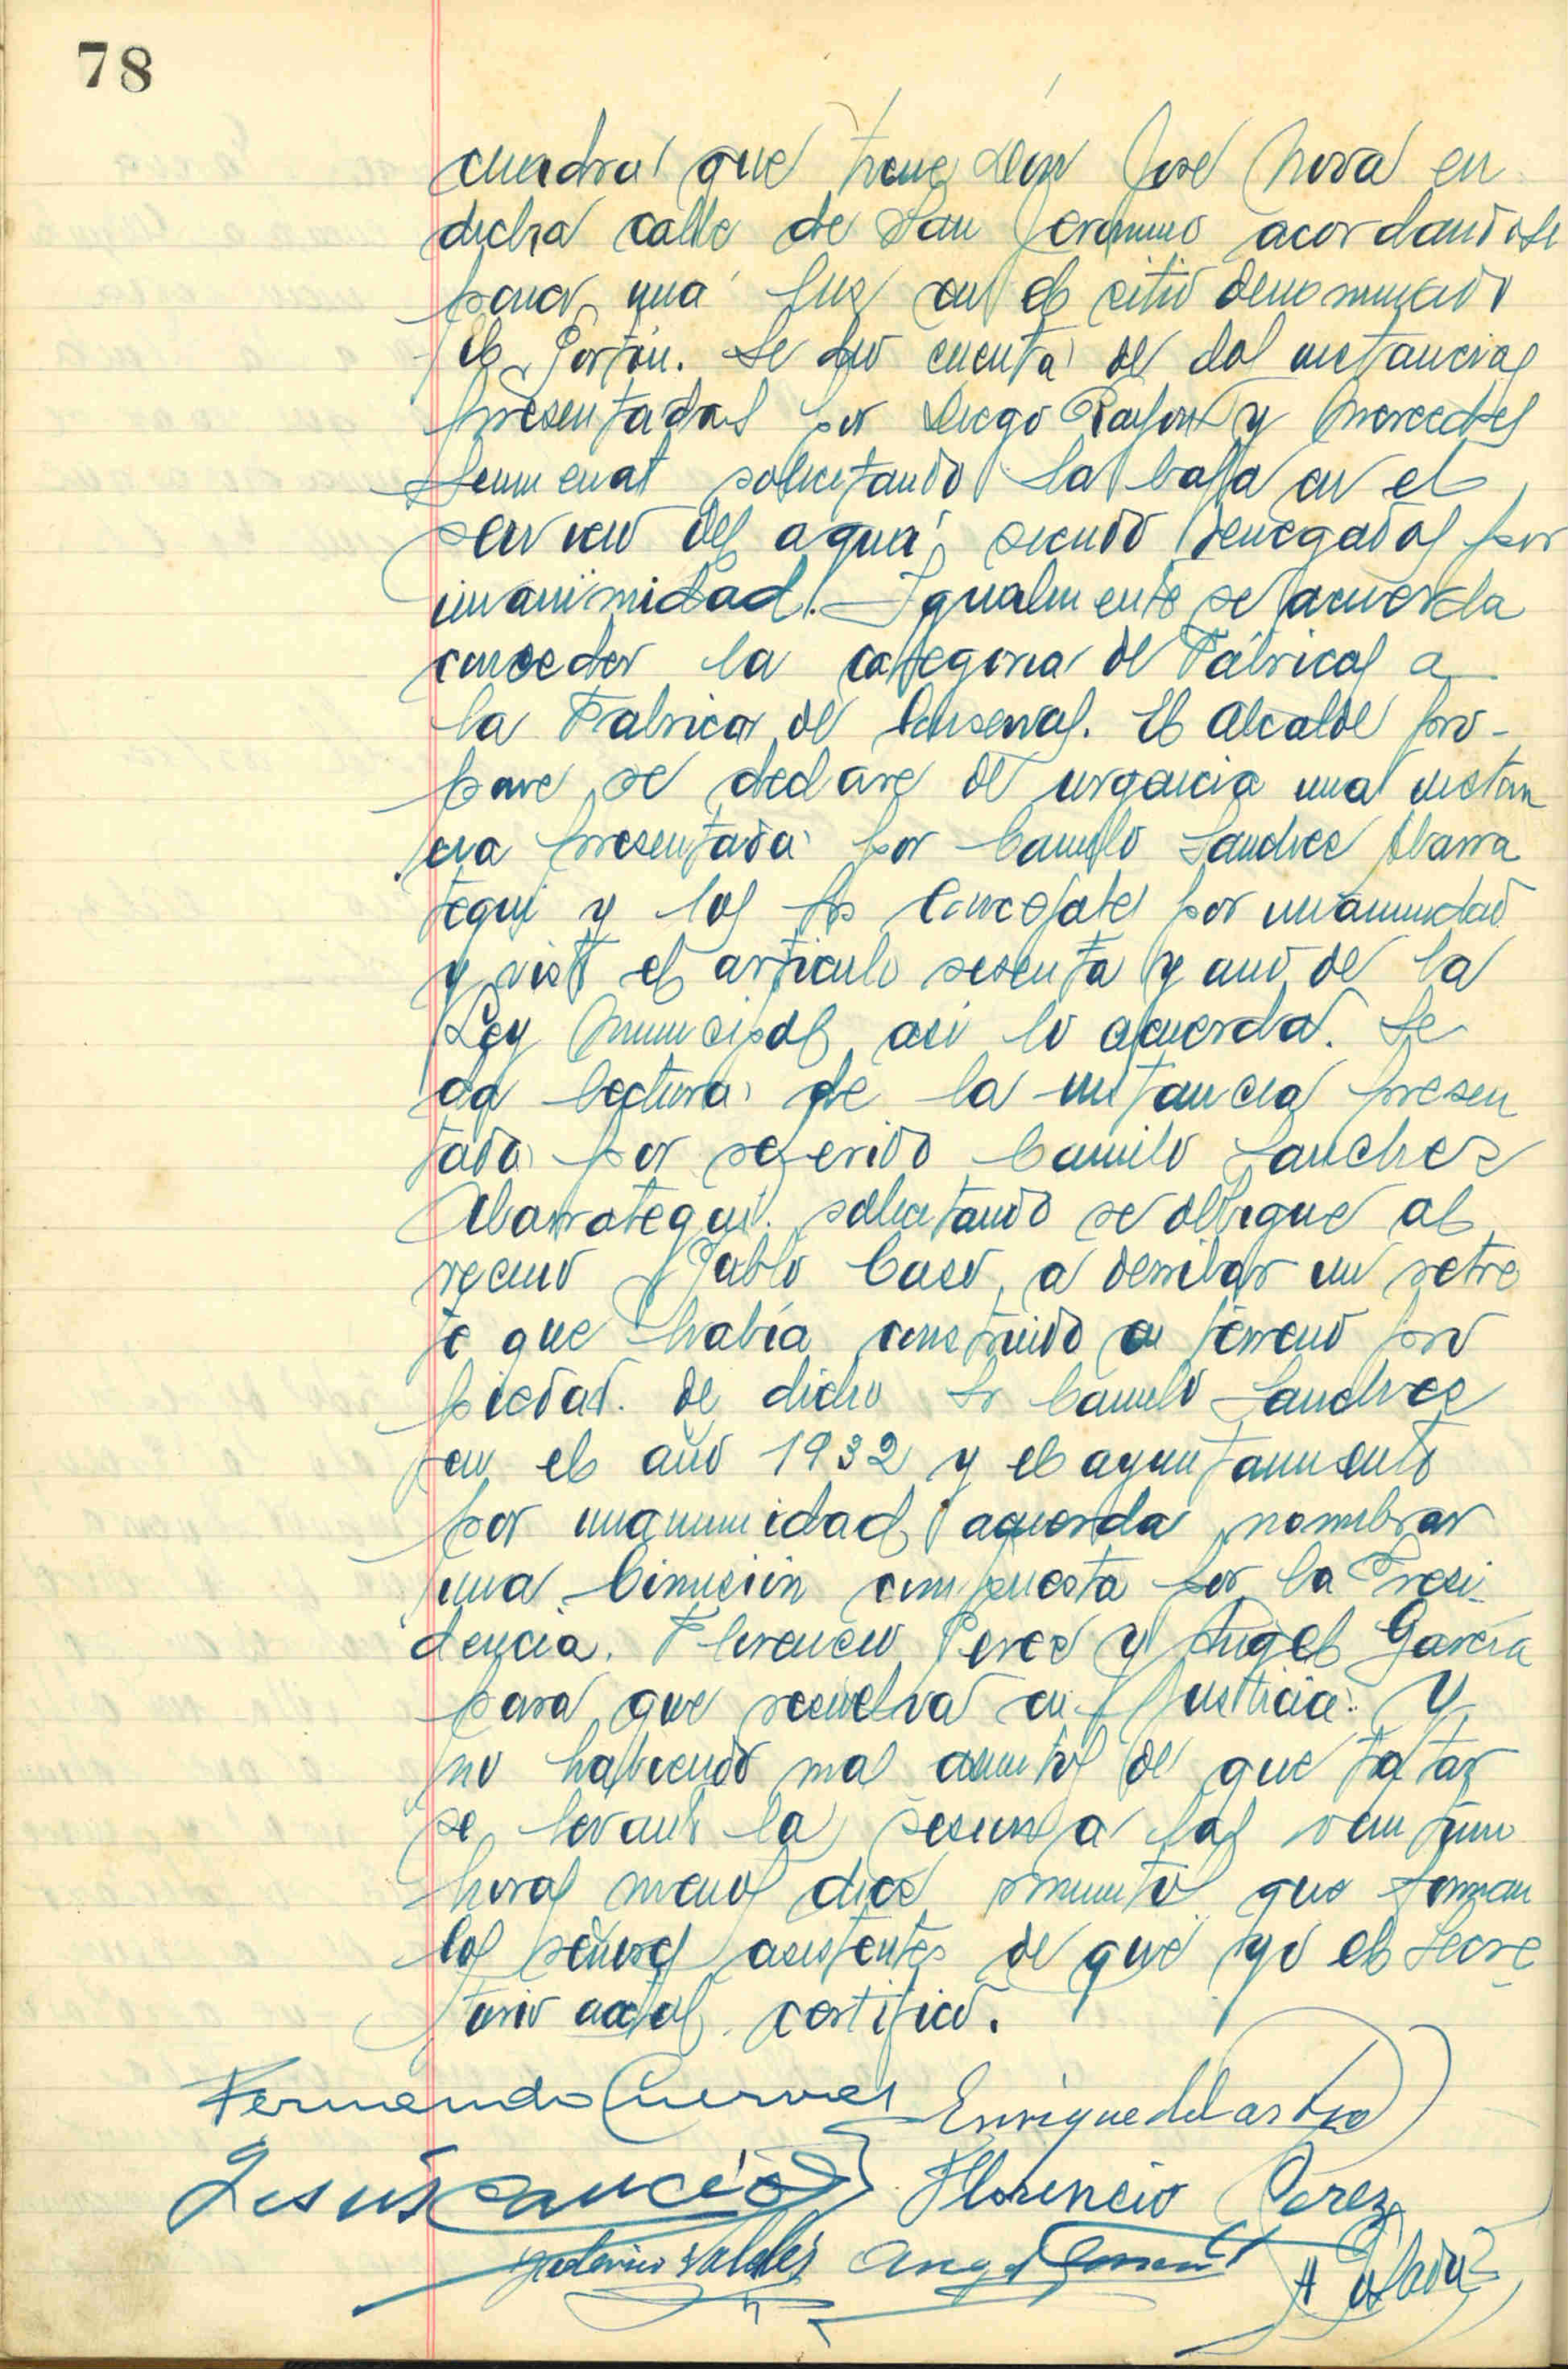 78
cuadra que tiene Don Jose Mora en
dicha calle de San Jeronimo acordandose
poner una luz en el sitio denominado
el Portón. Se dio cuenta de dos instancias
presentadas por Diego y Mercedes
solicitando la baja en el
servicio del agua, siendo denegados por
unanimidad. Igualmente se acuerda
conceder la categoria de Fábricas a
la Fabrica de Conservas. El Alcalde pro-
pone se declare de urgencia una instan
cia presentada por Camilo Sanchez Abarra
tegui y los Srs Concejales por unanimidad
y visto el articulo sesenta y uno de la
Ley Municipal asi lo acuerda. Se
da lectura de la instancia presen
tada por referido Camilo Sanchez
Abarrategui solicitando se obligue al
vecino Pablo Caso, a derribar un retre
te que había construido en terreno pro
piedad de dicho Sr Camilo Sanchez
en el año 1932 y el ayuntamiento
por unanimidad acuerda nombrar
una Comisión compuesta por la Presi-
dencia. Florencio Perez y Angel García
para que resuelva en Justicia. Y
no habiendo mas asuntos de que tratar
se levanta la sesion a las veintiuna
horas menos diez minutos que firman
los señores asistentes de que yo el Secre
tario actal certifico.
Fernando Cuervas Enrique del
Jesús Cancio Florencio Perez
Valdés Angel